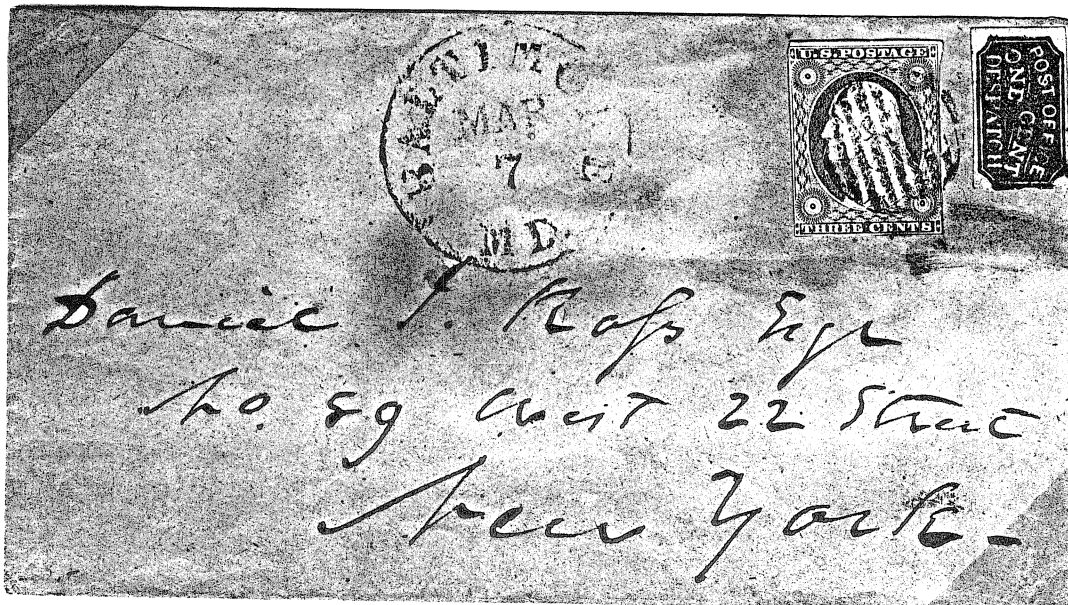 BALTIMO
MAR
7
MD.
U.S. POSTAGE
THREE CENTS
POST OFFICE
ONE CENT
DESPATCH
Daniel Roſs Esqr
No. 59 West 22 Street
New York-